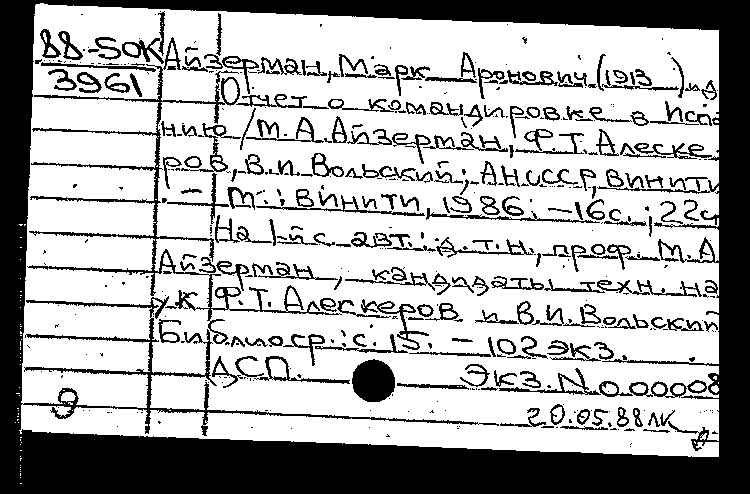 88-50К Айзерман, Марк Аронович (1913 ) и д
3961 Отчет о командировке в Испа
нию / М. А. Айзерман, Ф. Т. Алеске
ров, В. И. Вольский; АН СССР, ВИНИТИ
. - М.: ВИНИТИ, 1986. - 16с.; 22с
На 1-й с. авт.: д. т. н., проф. М. А
Айзерман, кандидаты техн. на
ук Ф. Т. Алескеров и В. И. Вольский
Библиогр.: с. 15. - 102 экз.
ДСП. Экз. N 0.00008
9
20.05.88 ЛК